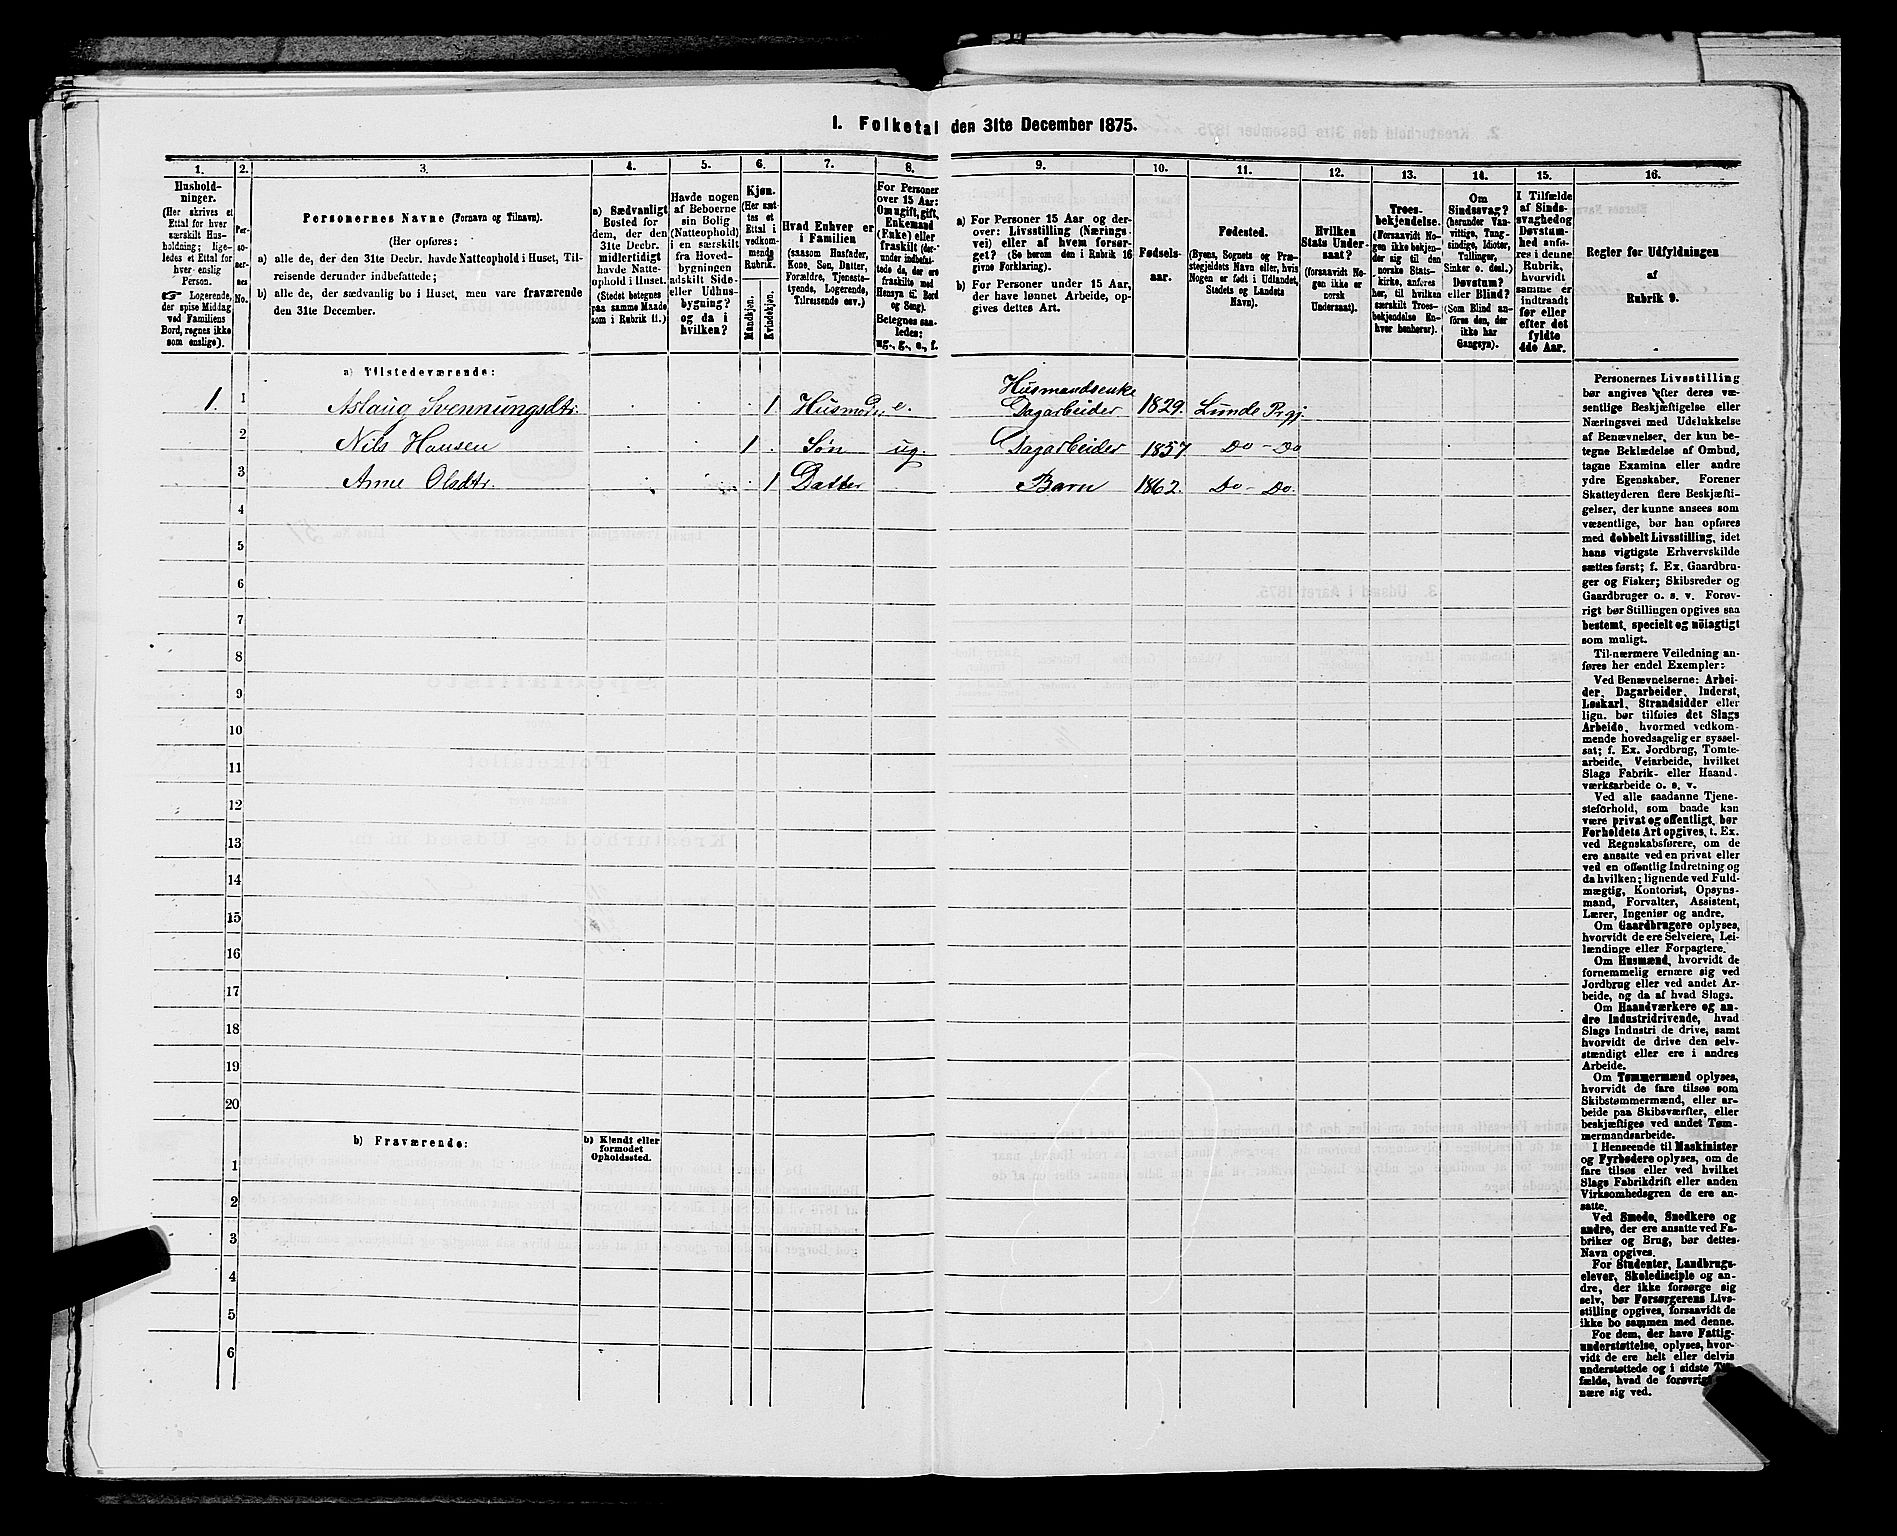 I. Folketal den 31te December 1875.
1.
2.
3.
4.
5.
6.
7.
8.
9.
10.
11.
12.
13.
14.
15.
16.
Hushold-
ninger.
(Her skrives et
Ettal for hver
særskilt Hus-
holdning; lige-
ledes et Ettal for
hver enslig
Person.
☞ Logerende,
der spise Middag
ved Familiens
Bord, regnes ikke
som enslige).
Per-
so-
ner-
nes
No.
Personernes Navne (Fornavn og Tilnavn).
(Her opføres:
a) alle de, der den 31te Decbr. havde Natteophold i Huset, Til-
reisende derunder indbefattede;
b) alle de, der sædvanlig bo i Huset, men vare fraværende
den 31te December.
a) Sædvanligt
Bosted for
dem, der den
31te Decbr.
midlertidigt
havde Natte-
ophold i Huset.
(Stedet betegnes
paa samme Maade
som i Rubrik 11.)
Havde nogen
af Beboerne
sin Bolig
(Natteophold)
i en særskilt
fra Hoved-
bygningen
adskilt Side-
eller Udhus-
bygning?
og da i
hvilken?
Kjøn.
(Her sæt-
tes et
Ettal i
vedkom-
mende
Rubrik.
Mandkjøn.
Kvindekjøn.
Hvad Enhver er
i Familien
(saasom Husfader,
Kone, Søn, Datter,
Forældre, Tjeneste-
tyende, Logerende,
Tilreisende osv.)
For Personer
over 15 Aar:
Om ugift, gift,
Enkemand
(Enke) eller
fraskilt (der-
under indbefat-
tede de, der ere
fraskilte med
Hensyn til Bord
og Seng).
Betegnes saa-
ledes:
ug., g., e., f.
a) For Personer 15 Aar og der-
over: Livsstilling (Nærings-
vei) eller af hvem forsør-
get? (Se herom den i Rubrik 16
givne Forklaring).
b) For Personer under 15 Aar,
der have lønnet Arbeide, op-
gives dettes Art.
Fødsels-
aar.
Fødested.
(Byens, Sognets og Præ-
stegjeldets Navn eller, hvis
Nogen er født i Udlandet,
Stedets og Landets
Navn).
Hvilken
Stats Under-
saat?
(forsaavidt No-
gen ikke er
norsk
Undersaat).
Troes-
bekjendelse.
(Forsaavidt No-
gen ikke bekjen-
der sig til den
norske Stats-
kirke, anføres
her, til hvilken
særskilt Troes-
bekjendelse En-
hver henhører).
Om
Sindssvag?
(herunder Van-
vittige, Tung-
sindige, Idioter,
Tullinger,
Sinker o. desl.)
Døvstum?
eller Blind?
(Som Blind an-
føres den, der
ikke har
Gangsyn).
I Tilfælde
af Sinds-
svaghed og
Døvstum-
hed anfø-
res i denne
Rubrik,
hvorvidt
samme er
indtraadt
før eller
efter det
fyldte
4de Aar.
Regler for Udfyldningen
af
Rubrik 9.
a) Tilstedeværende:
1. 1 Aslaug Svenningsdtr. 1 Husmoder e. Husmandsenke Dagarbeider 1829. Lunde Prgj.
2 Nils Hansen 1 Søn ug. Dagarbeider 1857 Do - Do
3 Anne Olsdtr. 1 Datter Barn 1862. Do - Do.
4
5
6
7
8
9
10
11
12
13
14
15
16
17
18
19
20
b) Fraværende:
b) Kjendt eller
formodet
Opholdssted.
1
2
3
4
5
6
Personernes Livsstilling
bør angives efter deres væ-
sentlige Beskjæftigelse eller
Næringsvei med Udelukkelse
af Benævnelser, der kun be-
tegne Beklædelse af Ombud,
tagne Examina eller andre
ydre Egenskaber. Forener
Skatteyderen flere Beskjæfti-
gelser, der kunne ansees som
væsentlige, bør han opføres
med dobbelt Livsstilling, idet
hans vigtigste Erhvervskilde
sættes først; f. Ex. Gaardbru-
ger og Fisker; Skibsreder og
Gaardbruger o. s. v. Forøv-
rigt bør Stillingen opgives saa
bestemt, specielt og nøiagtigt
som muligt.
Til nærmere Veiledning an-
føres her endel Exempler:
Ved Benævnelserne: Arbei-
der, Dagarbeider, Inderst,
Løskarl, Strandsidder eller
lign. bør tilføies det Slags
Arbeide, hvormed vedkom-
mende hovedsagelig er syssel-
sat; f. Ex. Jordbrug, Tomte-
arbeide, Veiarbeide, hvilket
Slags Fabrik- eller Haand-
værksarbeide o. s. v.
Ved alle saadanne Tjene-
steforhold, som baade kan
være privat og offentligt, bør
Forholdets Art opgives, t. Ex.
ved Regnskabsførere, om de
ere ansatte ved en privat eller
ved en offentlig Indretning og
da hvilken; lignende ved Fuld-
mægtig, Kontorist, Opsyns-
mand, Forvalter, Assistent,
Lærer, Ingeniør og andre.
Om Gaardbrugere oplyses,
hvorvidt de ere Selveiere, Lei-
lændinge eller Forpagtere.
Om Husmænd, hvorvidt de
fornemmelig ernære sig ved
Jordbrug eller ved andet Ar-
beide, og da af hvad Slags.
Om Haandværkere og an-
dre Industridrivende, hvad
Slags Industri de drive, samt
hvorvidt de drive den selv-
stændigt eller ere i andres
Arbeide.
Om Tømmermænd oplyses,
hvorvidt de fare tilsøs som
Skibstømmermænd, eller ar-
beide paa Skibsværfter, eller
beskjæftiges ved andet Tøm-
mermandsarbeide.
I Henseende til Maskinister
og Fyrbødere oplyses, om de
fare tilsøs eller ved hvilket
Slags Fabrikdrift eller anden
Virksomhedsgren de ere an-
satte.
Ved Smede, Snedkere og
andre, der ere ansatte ved Fa-
briker og Brug, bør dettes
Navn opgives.
For Studenter, Landbrugs-
elever, Skoledisciple og an-
dre, der ikke forsørge sig
selv, bør Forsørgerens Livs-
stilling opgives, forsaavidt de
ikke bo sammen med denne.
For dem, der have Fattig-
understøttelse, oplyses, hvor-
vidt de ere helt eller delvis
understøttede og i sidste Til-
fælde, hvad de forøvrigt
nære sig ved.